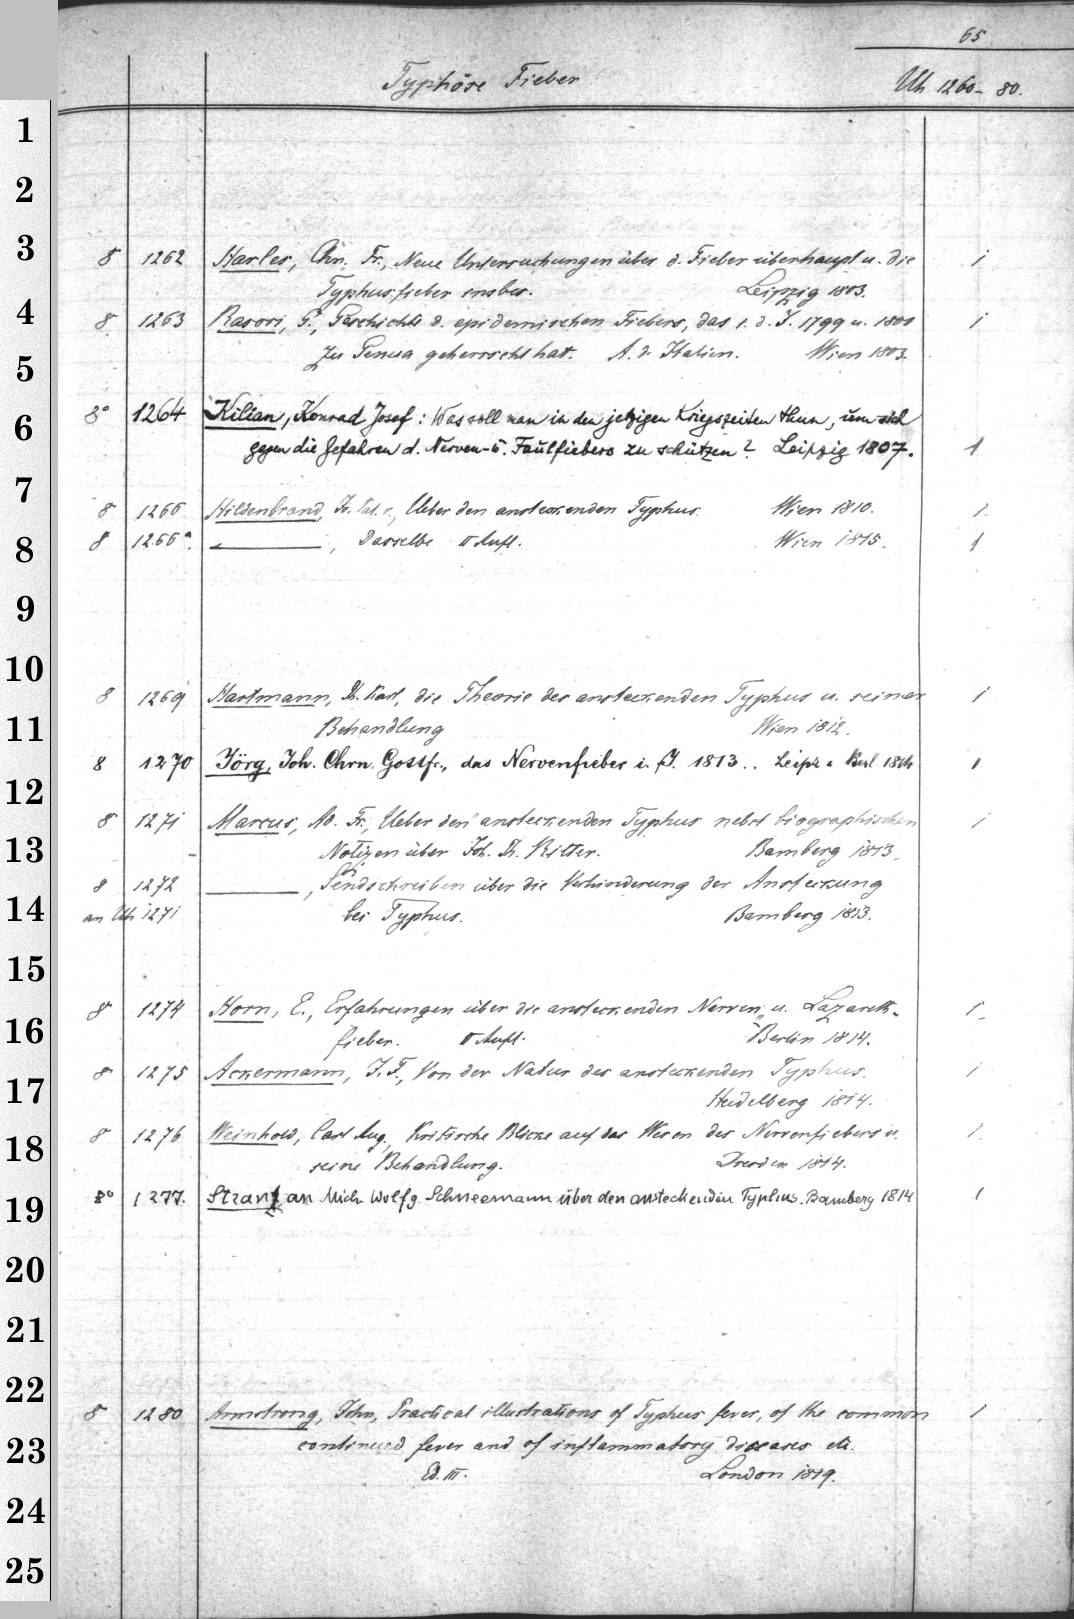 65
Typhöse Fieber Uh 1260-80.
1
2
3
8 1262 Harles, Chn. Fr., Neue Untersuchungen über d. Fieber überhaupt u. die 1
Typhusfieber insbes. Leipzig 1803.
4
8 1263 Rasori, G., Geschichte d. epidemischen Fiebers, das i. d. J. 1799 u. 1800 1
5
zu Genua geherrscht hat. A. d. Italien. Wien 1803.
6
8° 1264 Kilian, Konrad Josef: Was soll man in den jetzigen Kriegszeiten thun, um sich
gegen die Gefahren d. Nerven- u. Faulfiebers zu schützen? Leipzig 1807. 1
7
8 1266 Hildenbrand, Val. v., Ueber den ansteckenden Typhus. Wien 1810. 1.
8
8 1266a. ———, Dasselbe II Aufl. Wien 1815. 1
9
10
8 1269 Hartmann, Ph. Karl, die Theorie des ansteckenden Typhus u. seiner 1
11
Behandlung Wien 1812.
8 1270 Jörg, Joh. Chrn. Gottfr., das Nervenfieber i. J. 1813.. Leipz. u. Berl 1814 1
12
8 1271 Marcus, Ad. Fr., Ueber den ansteckenden Typhus nebst biographischen 1
13
Notizen über Joh. Th. Ritter. Bamberg 1813.
8 1272 ———, Sendschreiben über die Verhinderung der Ansteckung
14
an Uh 1271 bei Typhus. Bamberg 1813.
15
8 1274 Horn, E., Erfahrungen über die ansteckenden Nerven- u. Lazareth- 1.
16
fieber. II Aufl. Berlin 1814.
17
8 1275 Ackermann, J. F., Von der Natur des ansteckenden Typhus. 1
Heidelberg 1814.
18
8 1276 Weinhold, Carl Aug., Kritische Blicke auf das Wesen des Nervenfiebers u. 1.
seine Behandlung. Dresden 1814.
19
8° 1277. an Mich. Wolfg. Schneemann über den ansteckenden Typhus. Bamberg 1814 1
20
21
22
8 1280 Armstrong, John, Practical illustrations of Typhus fever, of the common 1
23
continued fever and of inflammatory diseases etc.
Ed. III. London 1819.
24
25